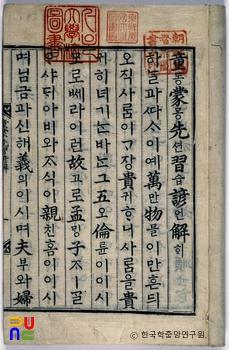 童동蒙몽先션習습諺언解해
하ᄂᆞᆯ과ᄯᅡᄉᆞ이예萬만物믈이만ᄒᆞᆫᄃᆡ
오직사ᄅᆞᆷ이ᄀᆞ장貴귀ᄒᆞ니사ᄅᆞᆷ을貴
귀히너기ᄂᆞᆫ바ᄂᆞᆫ그五오倫륜이이시
모로ᄡᅦ라이런故고로孟ᄆᆡᆼ子ᄌᆞㅣᄀᆞᆯ
ᄋᆞ샤ᄃᆡ아비와ᄌᆞ식이親친홈이이시
며님금과신해義의이시며夫부와婦
ⓒ 한국학중앙연구원